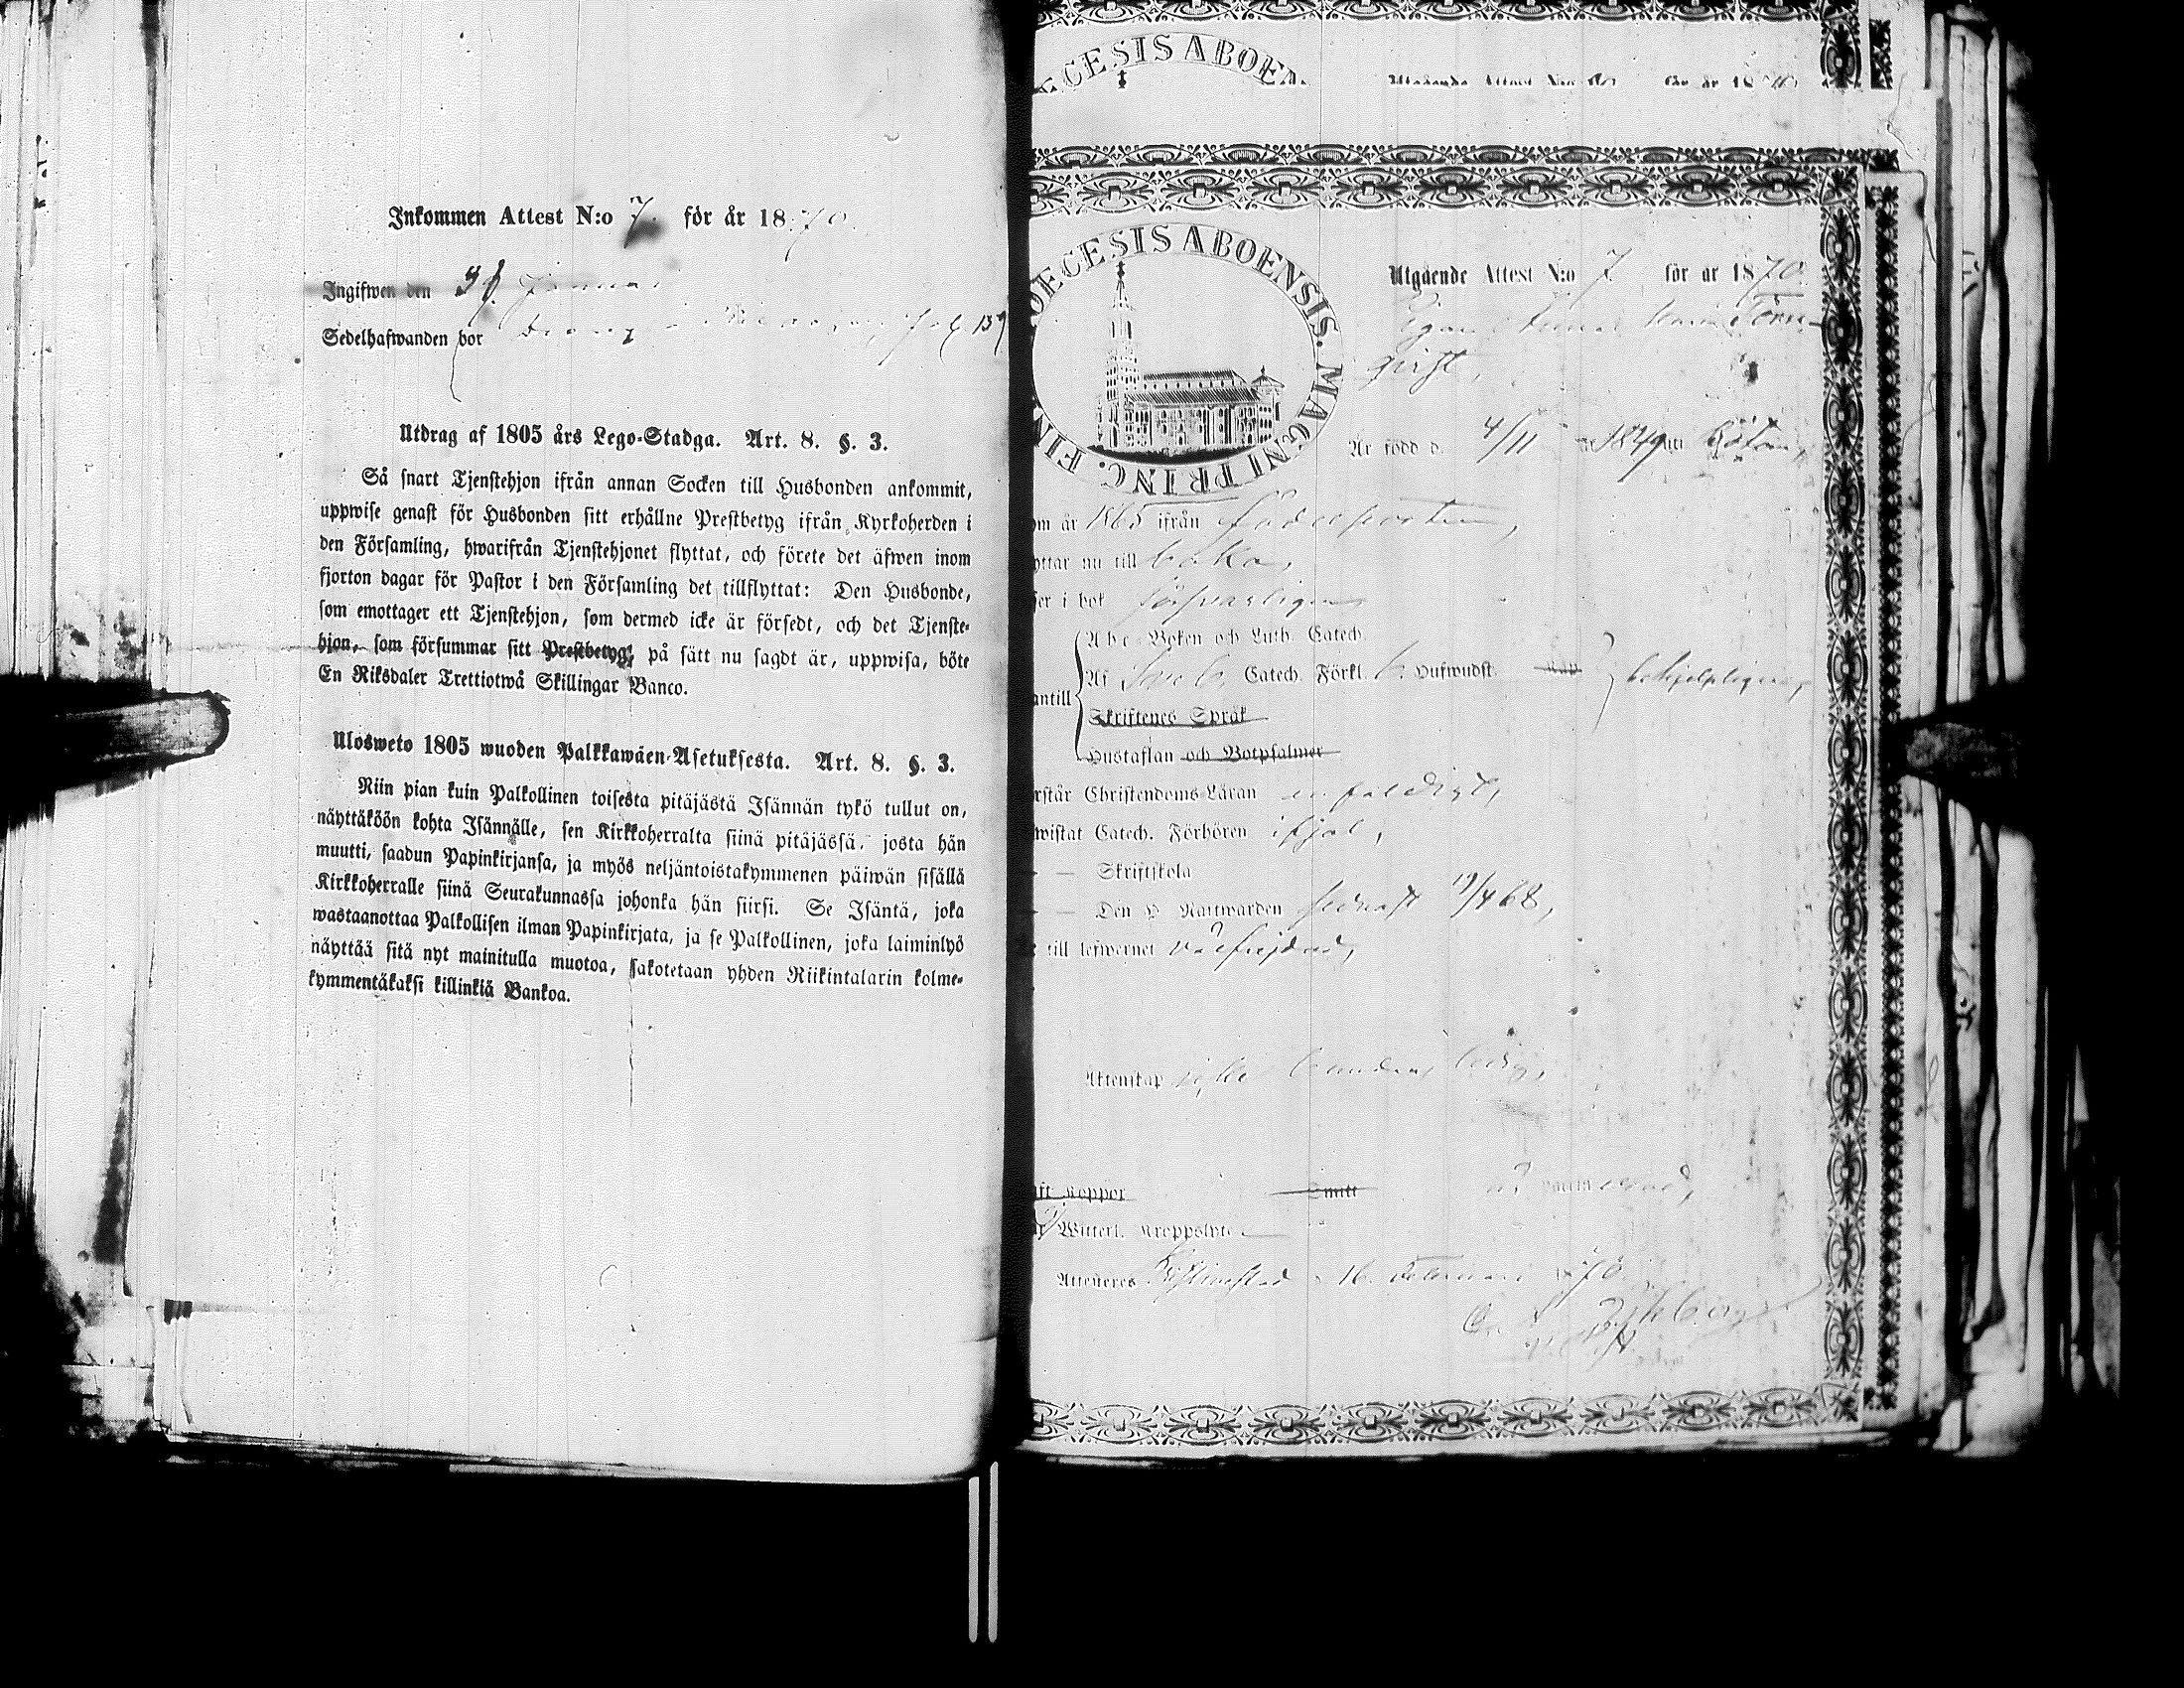 Inkommen Attest N:o 7. för år 1870.
Ingifwen den
Sedelhafwanden bor
Utdrag af 1805 års Lego-Stadga. Art. 8. §. 3.
Så snart Tjenstehjon ifrån annan Socken till Husbonden ankommit,
uppwise genast för Husbonden sitt erhållne Prestbetyg ifrån Kyrkoherden i
den Församling, hwarifrån Tjenstehjonet flyttat, och förete det äfwen inom
fjorton dagar för Pastor i den Församling det tillflyttat: Den Husbonde,
som emottager ett Tjenstehjon, som dermed icke är försedt, och det Tjenste-
hjon, som försummar sitt Prestbetyg, på sätt nu sagdt är, uppwisa, böte
En Riksdaler Trettiotwå Skillingar Banco.
Ulosweto 1805 wuoden Palkkawäen-Asetuksesta. Art. 8. §. 3.
Niin pian kuin Palkollinen toisesta pitäjästä Isännän tykö tullut on,
näyttäköön kohta Isännälle, sen Kirkkoherralta siinä pitäjässä, josta hän
muutti, saadun Papinkirjansa, ja myös neljäntoistakymmenen päiwän sisällä
Kirkkoherralle siinä Seurakunnassa johonka hän siirsi. Se Isäntä, joka
wastaanottaa Palkollisen ilman Papinkirjata, ja se Palkollinen, joka laiminlyö
näyttää sitä nyt mainitulla muotoa, sakotetaan yhden Riikintalarin kolme-
kymmentäkaksi killinkiä Bankoa.
ECESIS ABOEN
Utgående Attest N:o för år 1870
DIOECESIS ABOENSIS. MAGNI PRINC. FIN
Utgående Attest N:o 7 för år 1870.
Pigan
Är född d. 4/11 1849
om år 1865 ifrån födelseorten,
yttar nu till
ser i bok försvarligen
Abc Boken och Luth. Catech.
Af Sveb. Catech. Förkl. 6. Hufwudst. behjelpligen,
antill
Skriftenes Språk
Hustaflan och Botpsalmer
rstår Christendoms Läran enfaldigt,
wistat Catech. Förhören ifjol,
— Skriftskola
— Den H. Nattwarden sednast 19/4 68,
till lefwernet välfrejdad,
Äktenskap
ledig,
ft Koppor
Smitt
vaccinerad,
Witterl. Kroppslyte
Attesteres Kristinestad 16 Februari 1870